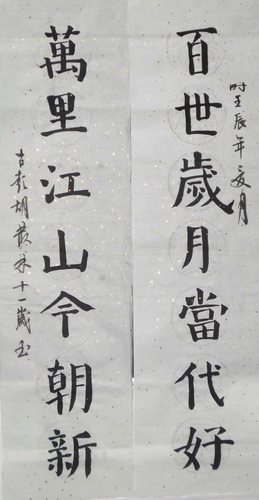 百世歲月當代好
時壬辰年夏月
萬里江山今朝新
古彭胡 十一歲玉